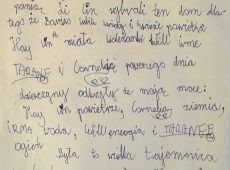 Li Cin wybrali ten dom dla-
tego że bardzo lubili wodę i świeże powietrze
Hay Lin miała koleżanki Will irme
TARANE i Cornelię pewnego dnia
dziewczyny odkryły że mają moce:
Hay Lin powietrze, Cornelia ziemia,
IRMA Woda, Will energia i TARANEE
Ogień
Była to wielka tajemnica